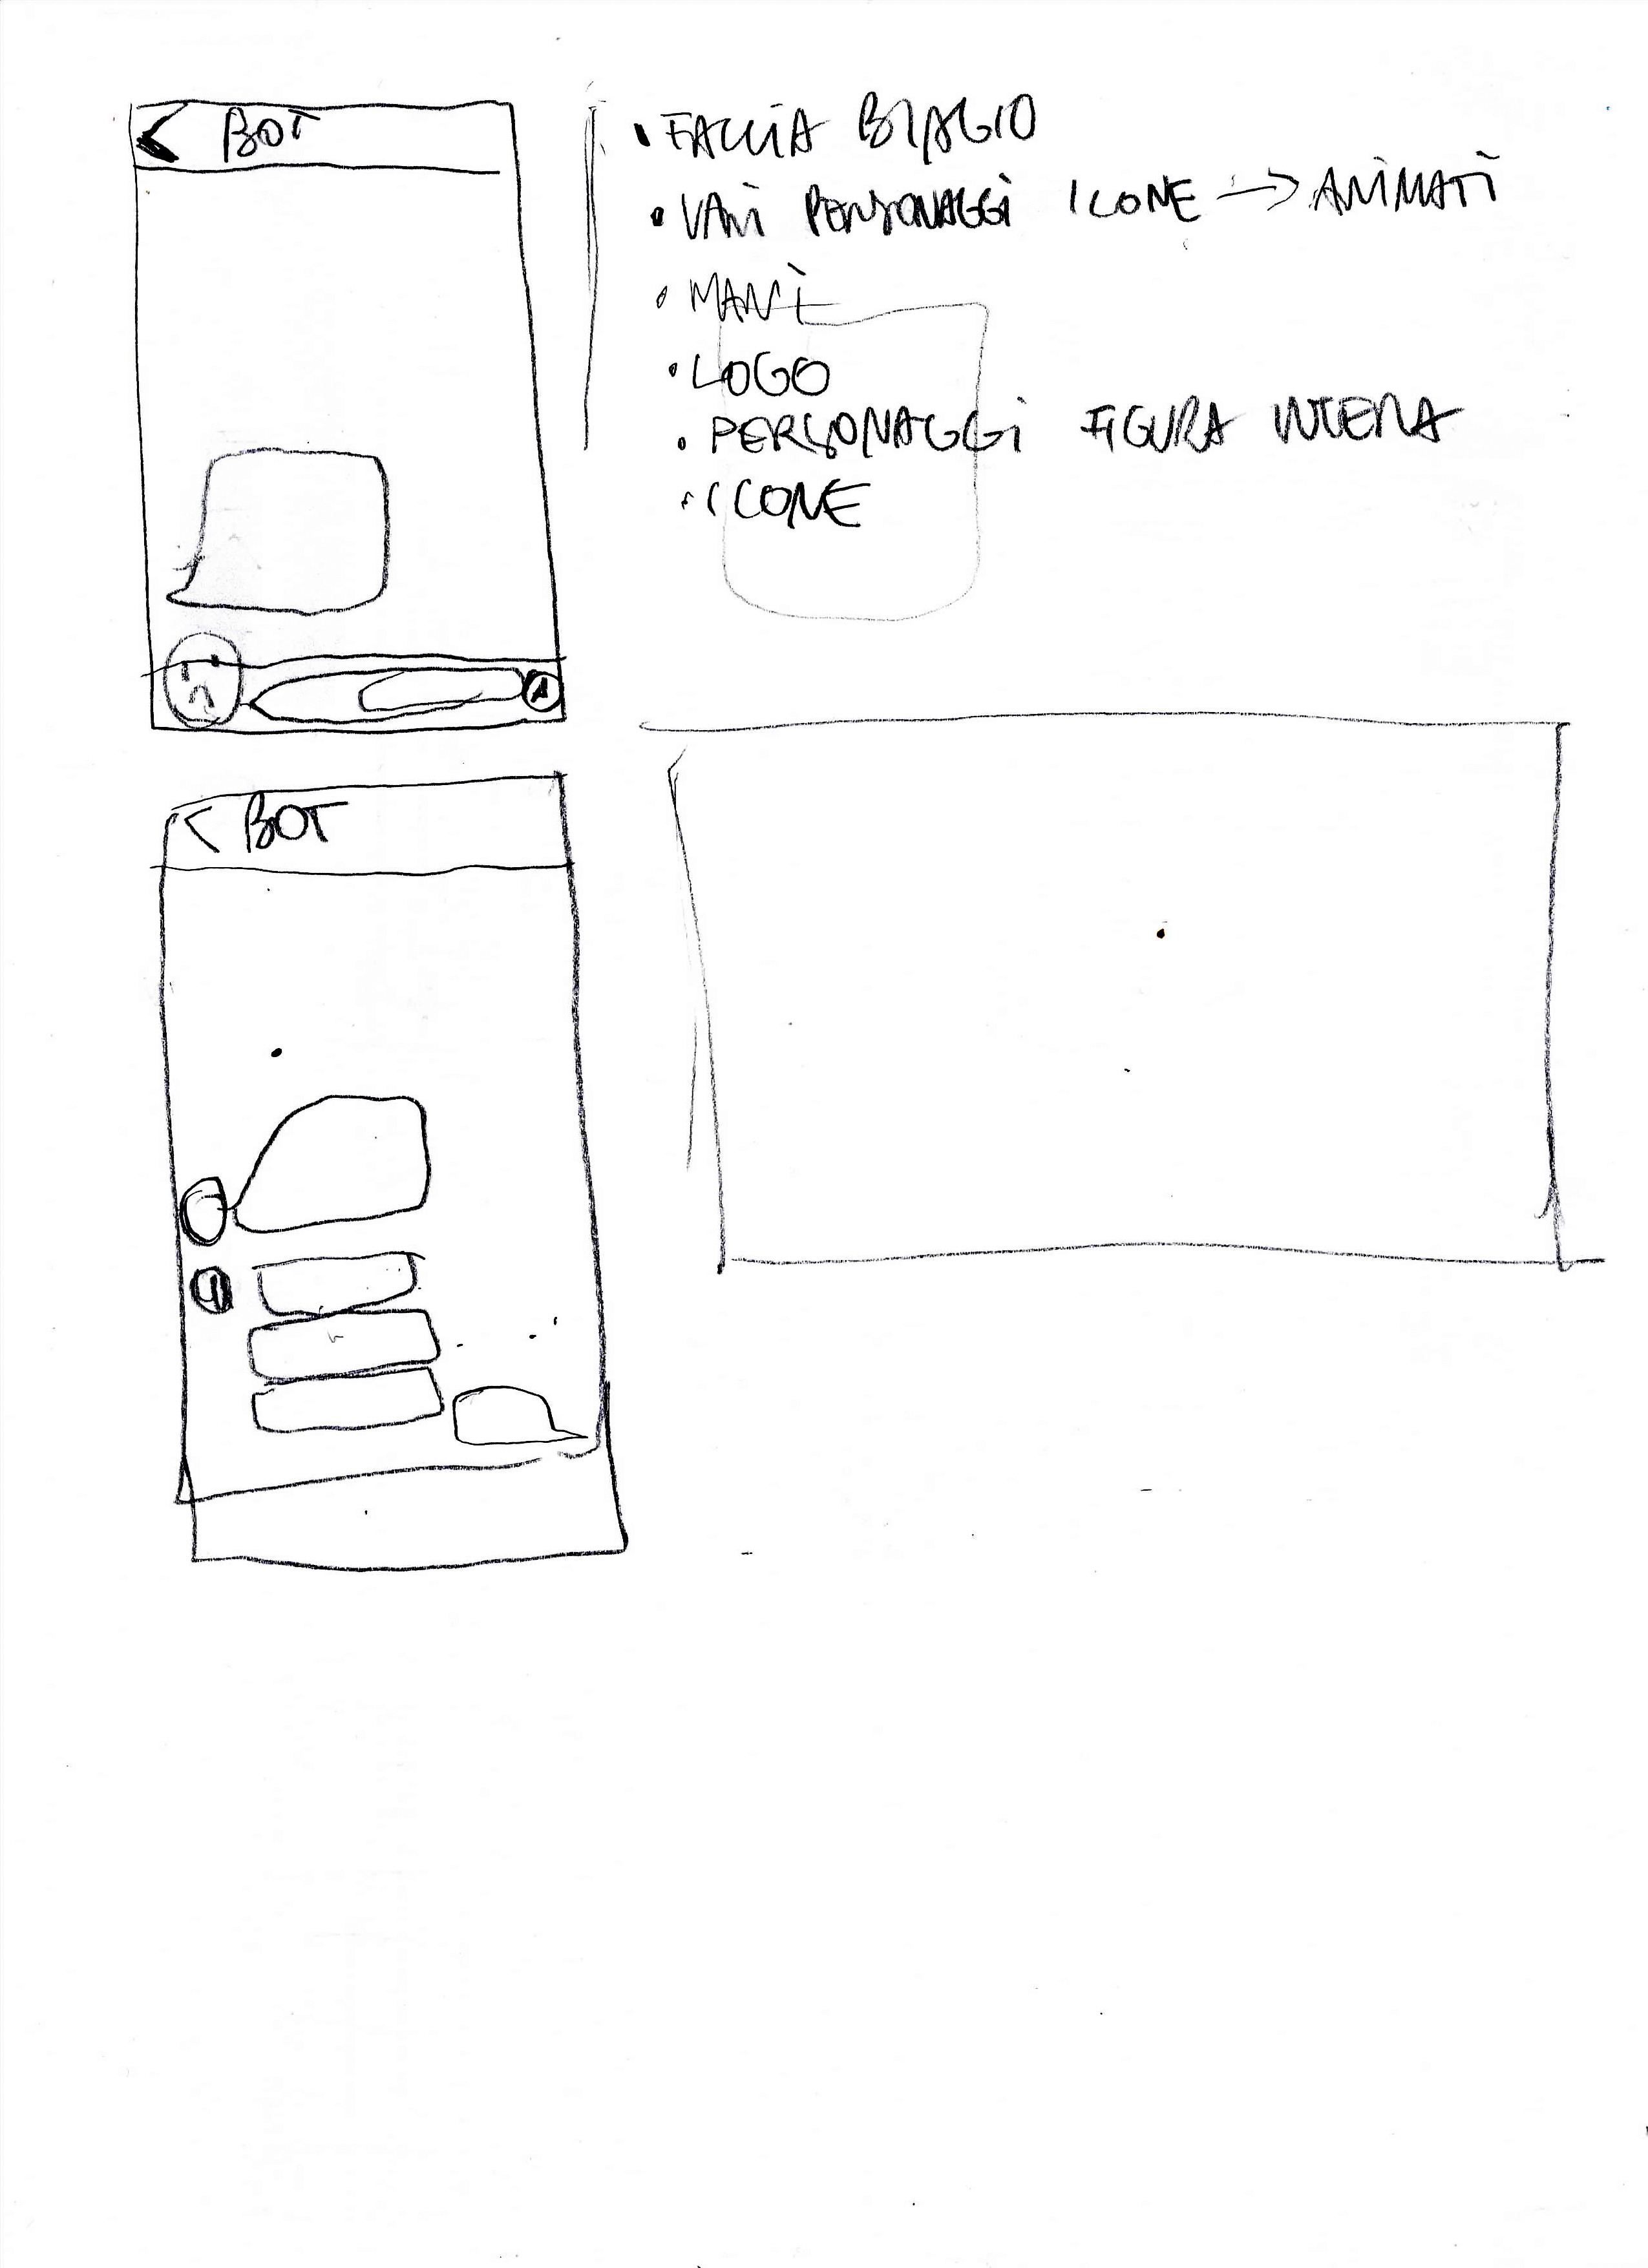 < BOT
• FACCIA BIAGIO
• VARI PERSONAGGI ICONE → ANIMATI
• MANI
• LOGO
• PERSONAGGI FIGURA INTERA
• ICONE
< BOT